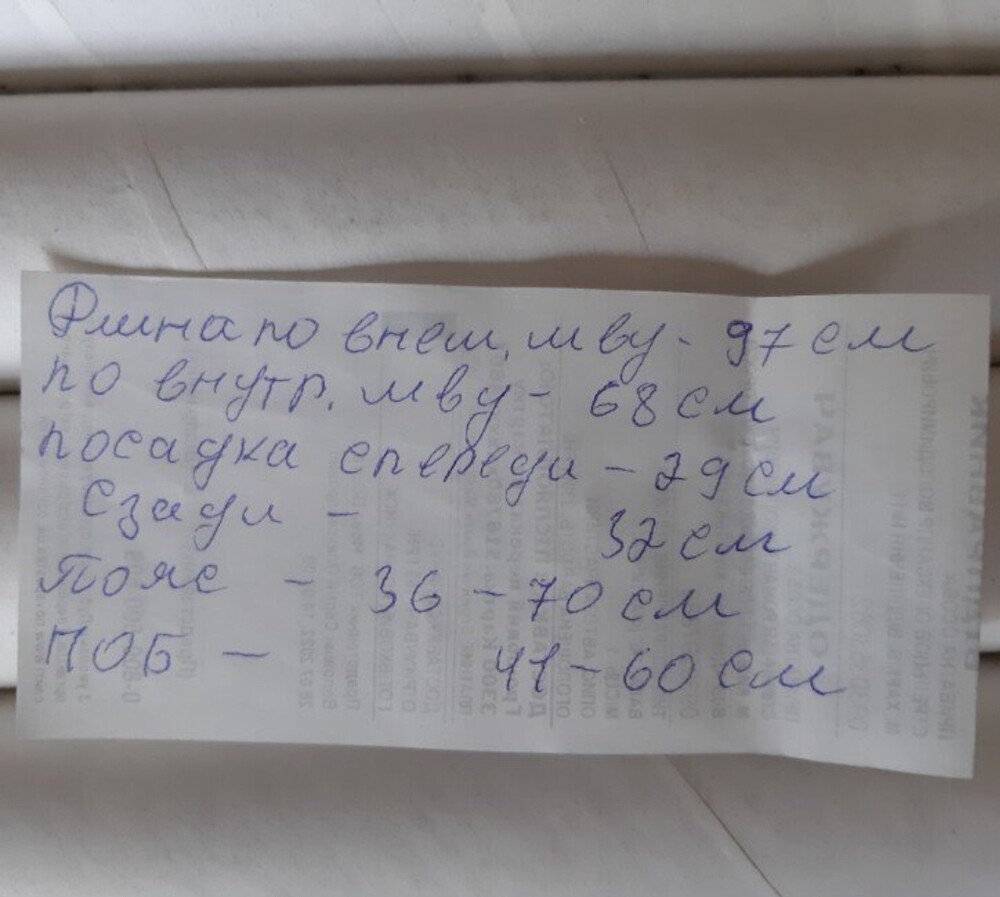 Длина по внеш, шву - 97 см
по внутр. шву - 68 см
посадка спереди - 29 см
Сзади - 32 см
Пояс - 36 - 70 см
ПОБ - 41 - 60 см